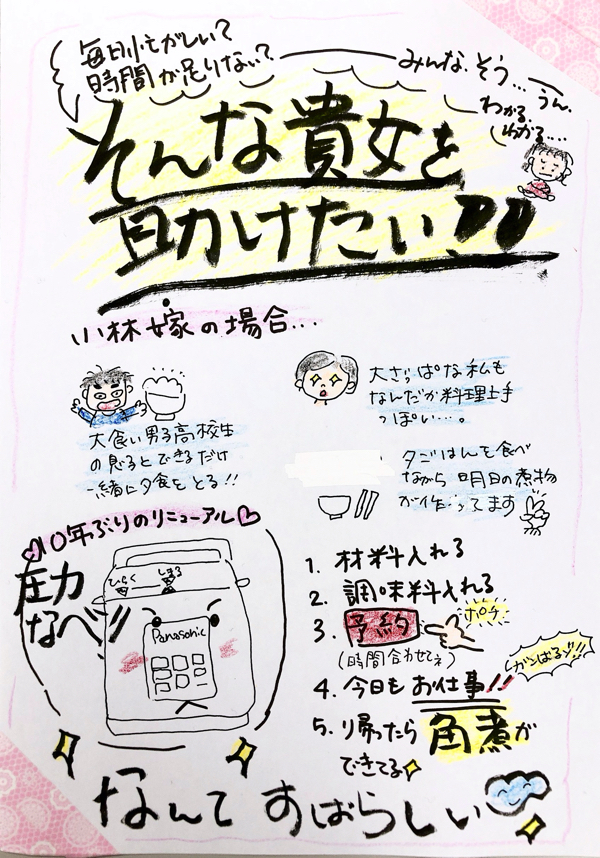 毎日忙がしい?
時間が足りない?
みんな、そう… うん、
わかる、
わかる….
そんな貴女を
助けたい!!
小林嫁の場合…
大食い男子高校生
の息子とできるだけ
一緒に夕食をとる!!
大ざっぱな私も
なんだか料理上手
っぽい…。
夕ごはんを食べ
ながら明日の煮物
が作ってます
10年ぶりのリニューアル♡
圧力
なべ!!
ひらく しまる
Panasonic
1. 材料入れる
2. 調味料入れる
3. 予約 ポチ
(時間合わせてネ)
4. 今日もお仕事!!
ガンバるゾ!!
5. 帰ったら角煮が
できてる
なんて すばらしい